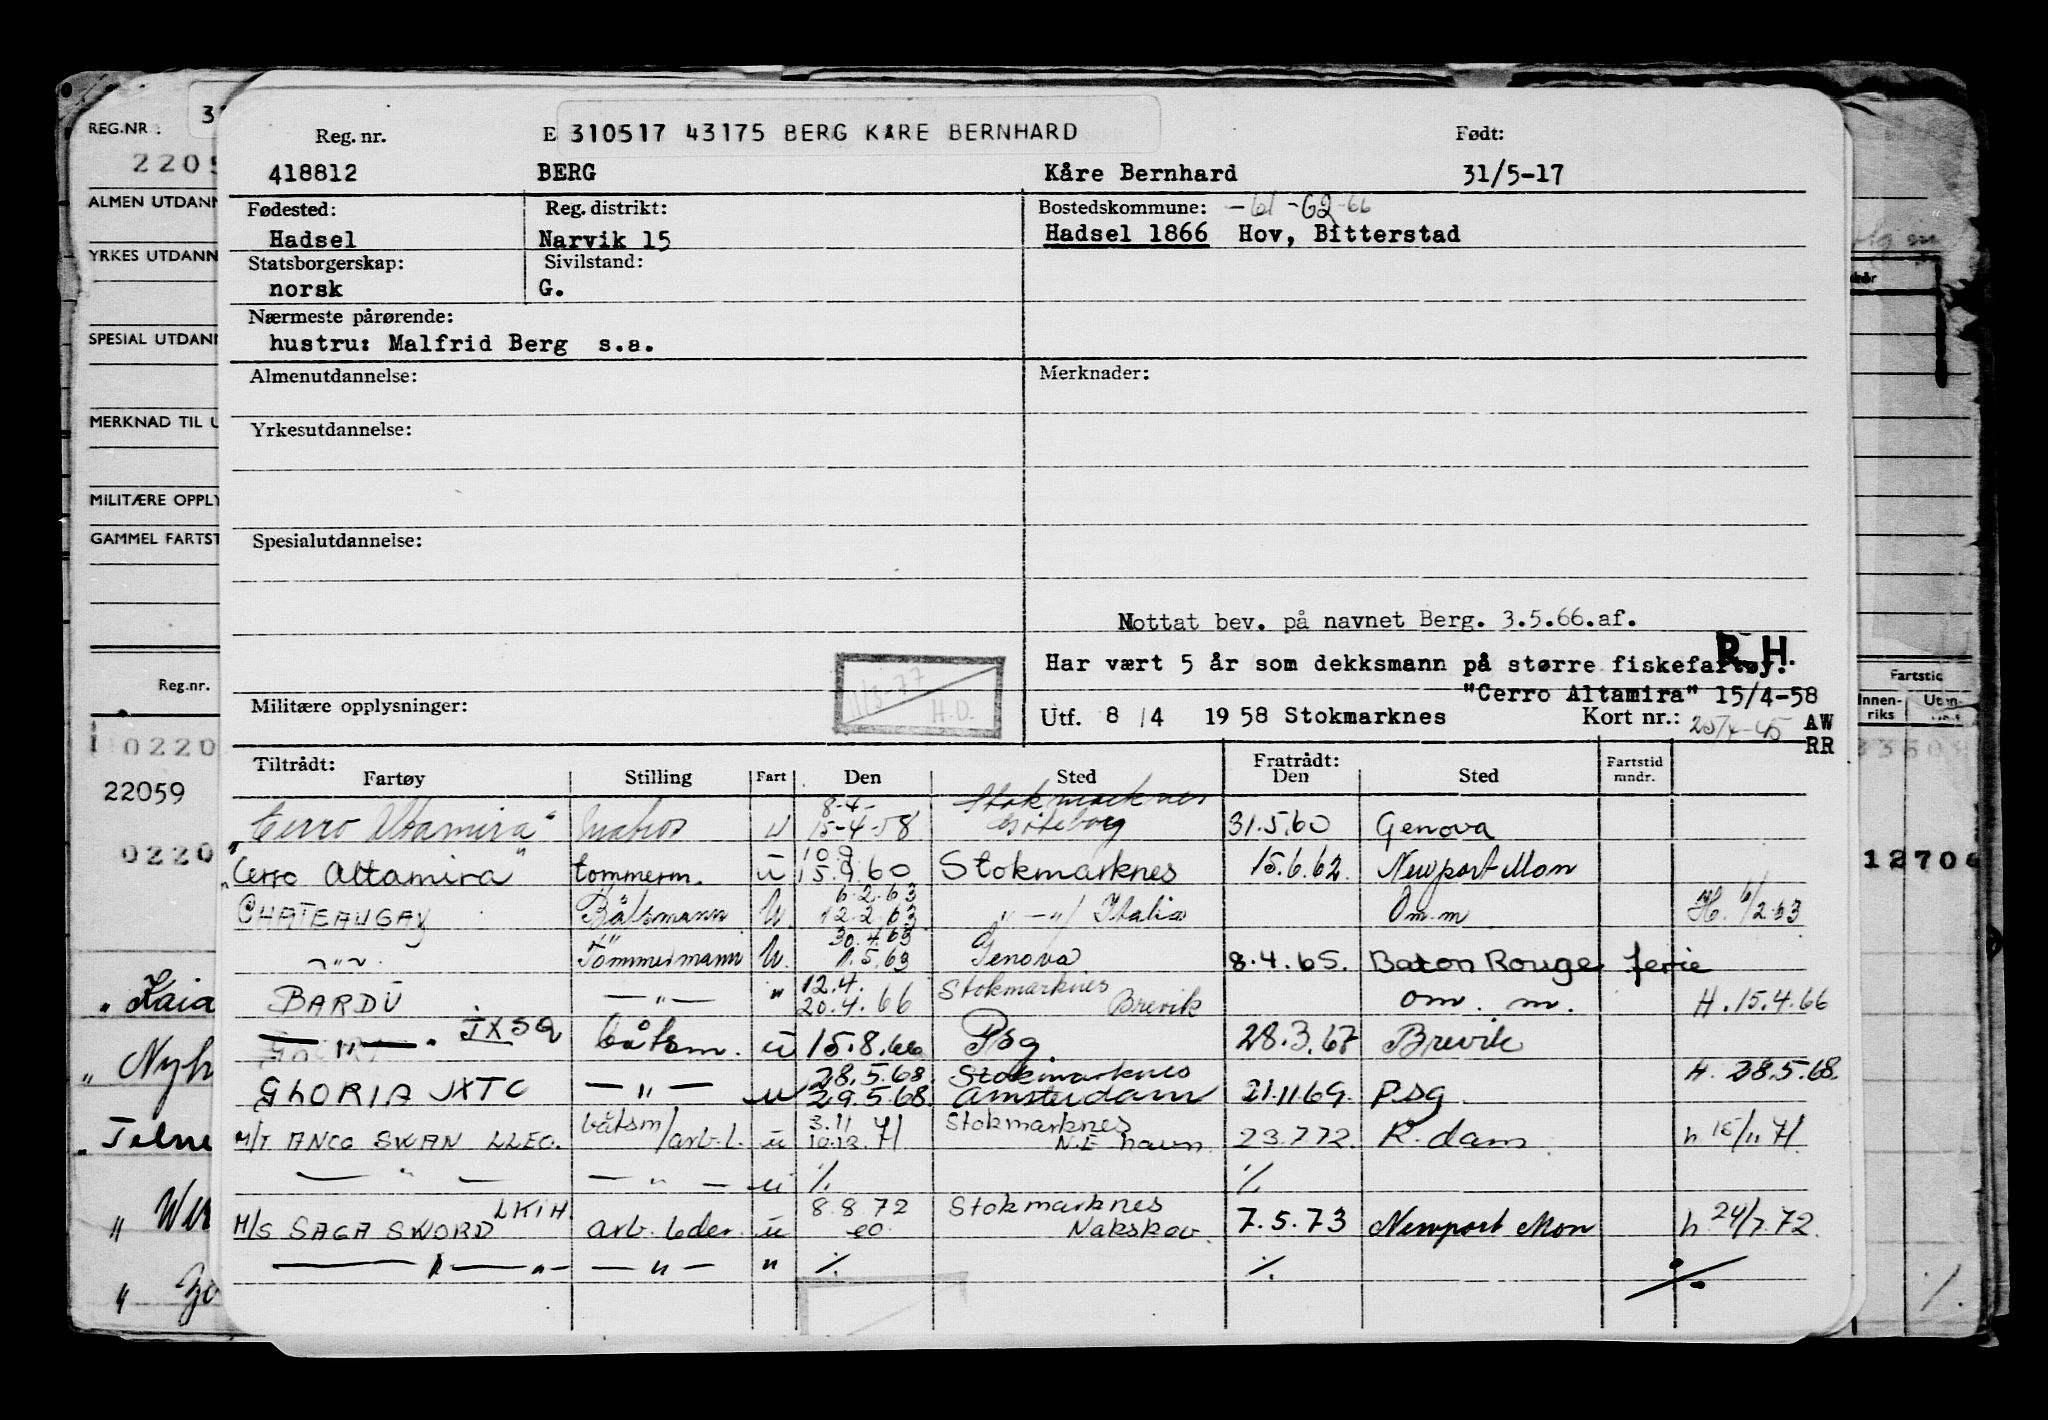 Reg. nr. E 310517 43175 BERG KÅRE BERNHARD Født:
418812 BERG Kåre Bernhard 31/5-17
Fødested: Reg. distrikt: Bostedskommune: -61-62-66
Hadsel Narvik 15 Hadsel 1866 Hov, Bitterstad
Statsborgerskap: Sivilstand:
norsk G.
Nærmeste pårørende:
hustru: Malfrid Berg s.a.
Almenutdannelse: Merknader:
Yrkesutdannelse:
Spesialutdannelse:
Nottat bev. på navnet Berg. 3.5.66.af.
R.H.
Har vært 5 år som dekksmann på større fiskefartøy.
"Cerro Altamira" 15/4-58
Militære opplysninger: 11/5-77 H.D. Utf. 8/4 1958 Stokmarknes Kort nr.: AW
RR
Tiltrådt: Fratrådt:
Fartøy Stilling Fart Den Sted Den Sted Fartstid mndr.
8-4- Stokmarknes
"Cerro Altamira" matros u 15-4-58 Göteborg 31.5.60 Genova
"Cerro Altamira" tømmerm. u 15.9.60 Stokmarknes 15.6.62. Newport Mon
6.2.63
CHATEAUGAY Båtsmann U. 12.2.63 "-"/ Italia Om.m H. 6/2-63
30.4.63
-"- Tömmermann U. 1.5.63 Genova 8.4.65. Baton Rouge ferie
12.4. Stokmarknes
BARDU -"- " 20.4.66 Brevik om. m. H. 15.4.66
-"-. JXSQ båtsm. u 15.8.66 Psg. 28.3.67 Brevik
28.5.68. Stokmarknes H. 28.5.68.
GLORIA JXTC -"- u 29.5.68. Amsterdam 21.11.69. Psg.
båtsm 3.11 Stokmarknes
M/T ANCO SWAN LLEO. /arb.l. u 10.12.71 N.E havn 23.7.72. R.dam h 15/11 71
-"- -"- u ./. ./.
LKIH 8.8.72 Stokmarknes
M/S SAGA SWORD arb. leder. u eo Nakskov. 7.5.73 Newport Mon h 24/7.72.
-"- -"- " ./. ./. ./.
REG.NR.
ALMEN UTDANN
YRKES UTDANN
SPESIAL UTDANN
MERKNAD TIL U
MILITÆRE OPPLY
GAMMEL FARTST
Reg.nr.
0220
22059
0220
"Kaia
"Nyh
"
"
"
Fartstid
Innen-
riks
12706
./.